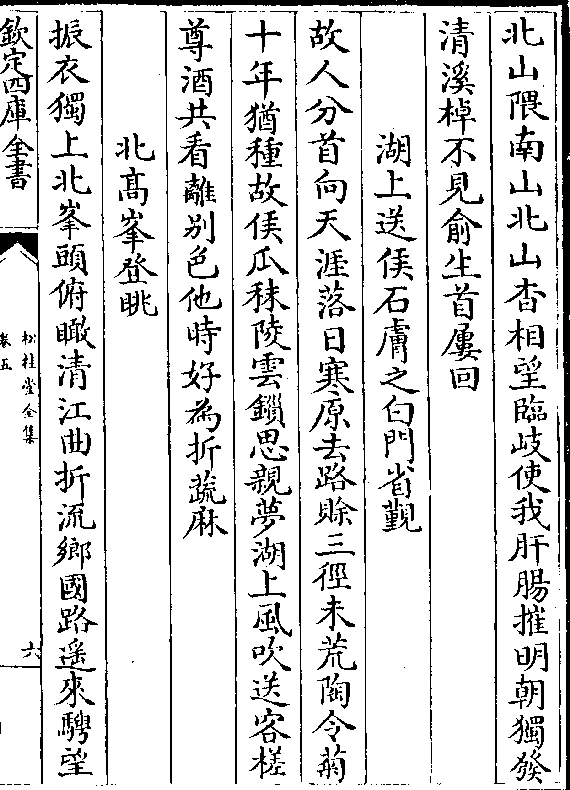 北山隈南山北山杳相望臨岐使我肝腸摧明朝獨發
清溪棹不見俞生首屢回
湖上送侯石庸之白門省覲
故人分首向天涯落日寒原去路賖三徑未荒陶令菊
十年猶種故侯瓜秣陵雲鎖思親夢湖上風吹送客槎
尊酒共看離别色他時好為折蔬麻
北高峯登眺
振衣獨上北峯頭俯瞰清江曲折流鄉國路遥來騁望
欽定四庫全書
松桂堂全集
卷五
六